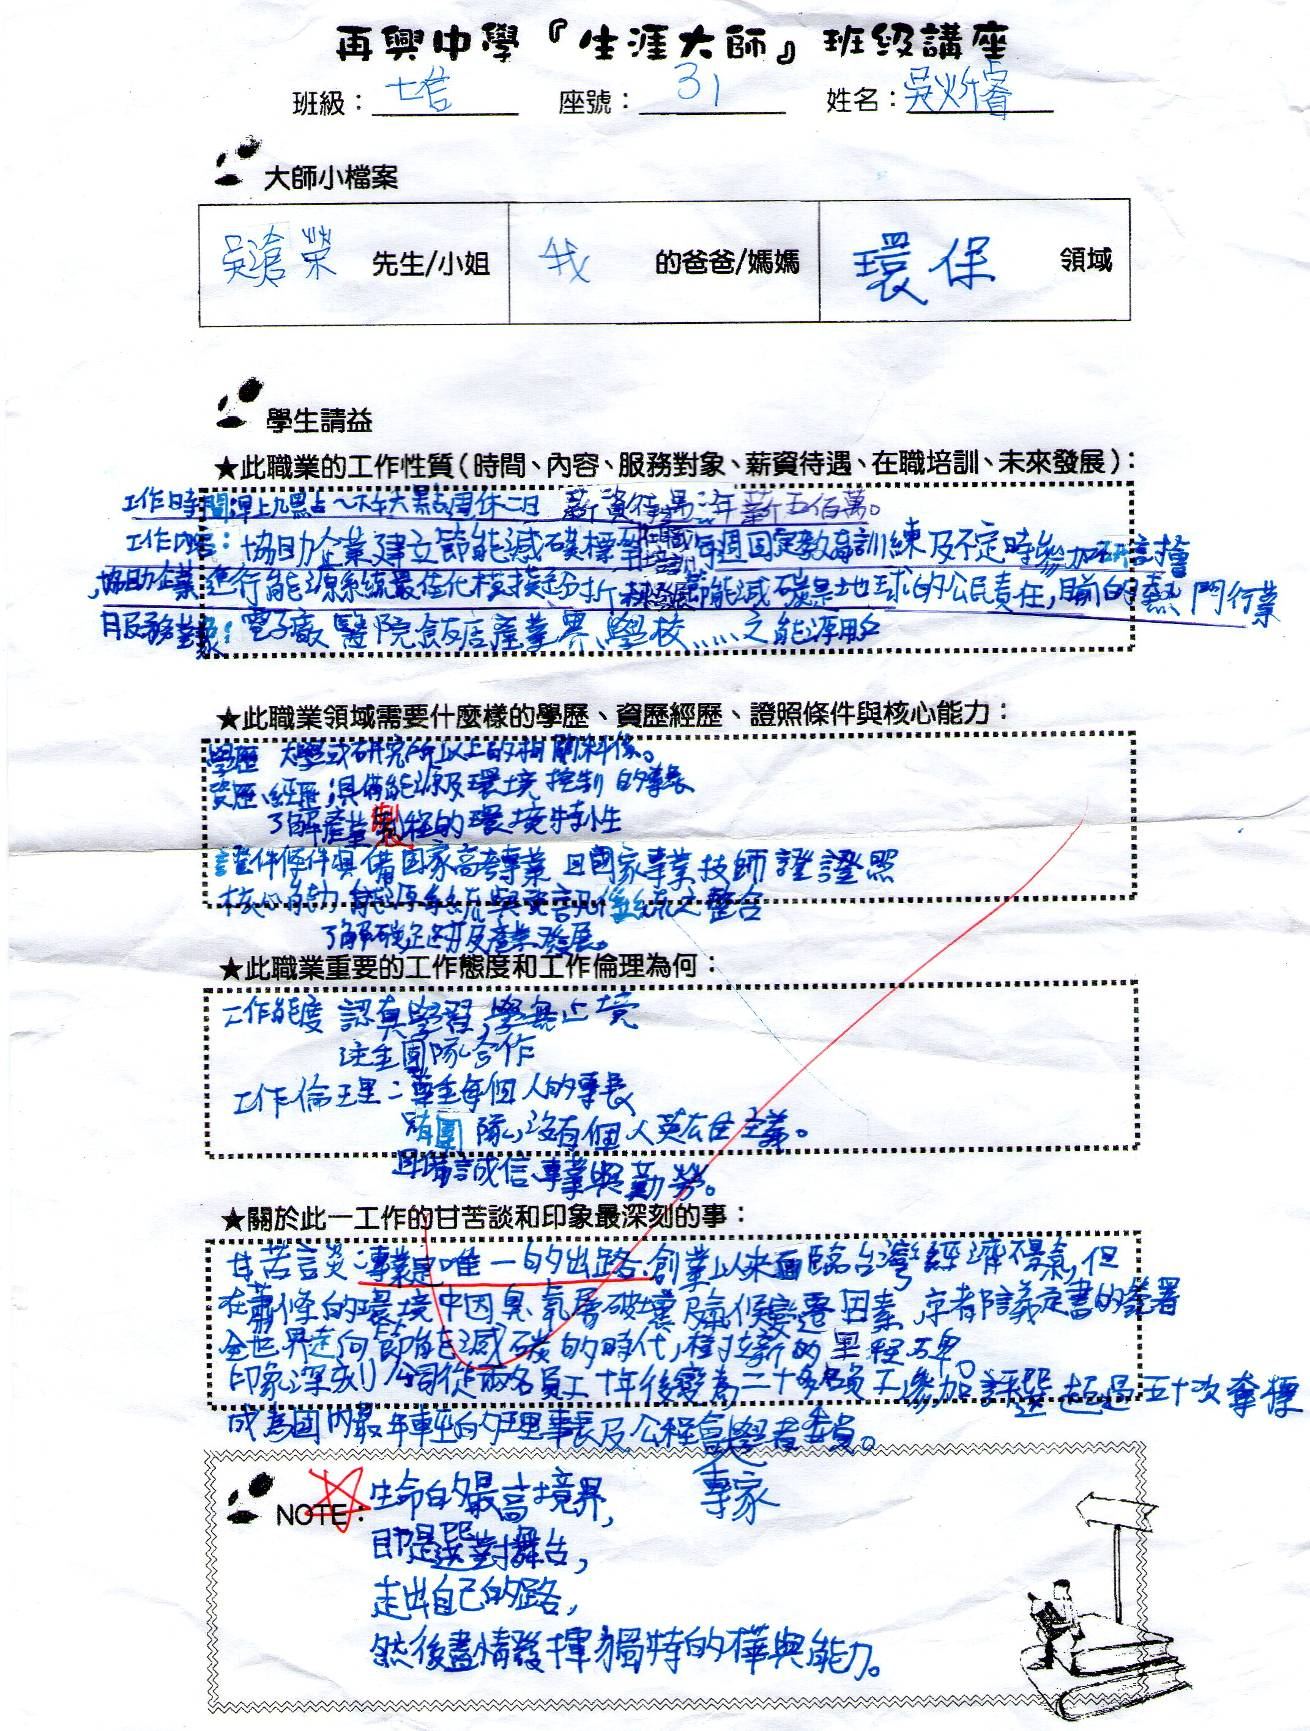 再興中學『生涯大師』班級講座
班級：七信 座號：31 姓名：吳炘睿
大師小檔案
吳滄榮 先生/小姐 我 的爸爸/媽媽 環保 領域
學生請益
★此職業的工作性質(時間、內容、服務對象、薪資待遇、在職培訓、未來發展)：
工作時間早上九點~下午六點週休二日 薪資待遇：年薪五佰萬。
工作內容：協助企業建立節能減碳標竿 在職培訓 每週固定教育訓練及不定時參加研討會
協助企業進行能源系統最佳化模擬分析 節能減碳是地球的公民責任，目前的熱門行業
服務對象：電子廠、醫院、飯店、產業界、學校……之能源用戶
★此職業領域需要什麼樣的學歷、資歷經歷、證照條件與核心能力：
學歷 大學或研究所以上的相關科係。
資歷、經歷：具備能源及環境控制的專長
了解產業製程的環境特性
證件條件具備國家高考專業且國家專業技師證證照
核心能力 能源系統與資訊係統之整合
了解碳足跡及產業發展。
★此職業重要的工作態度和工作倫理為何：
工作態度 認真學習，學無止境
注重團隊合作
工作倫理：尊重每個人的專長
有團隊，沒有個人英雄主義。
具備誠信、專業與勤勞。
★關於此一工作的甘苦談和印象最深刻的事：
甘苦言炎：專業是唯一的出路。創業以來面臨台灣經濟不景氣，但
在蕭條的環境中因臭氧層破壞及氣候變遷因素，京都議定書的簽署
全世界走向節能減碳的時代，樹立新的里程碑。
印象深刻：公司從兩名員工十年後變為二十多名員工，參加評選超過五十次奪標
成為國內最年輕的理事長及公程會學者委員。
專家
NOTE：生命的最高境界，
即是選對舞台，
走出自己的路，
然後盡情發揮獨特的才華與能力。